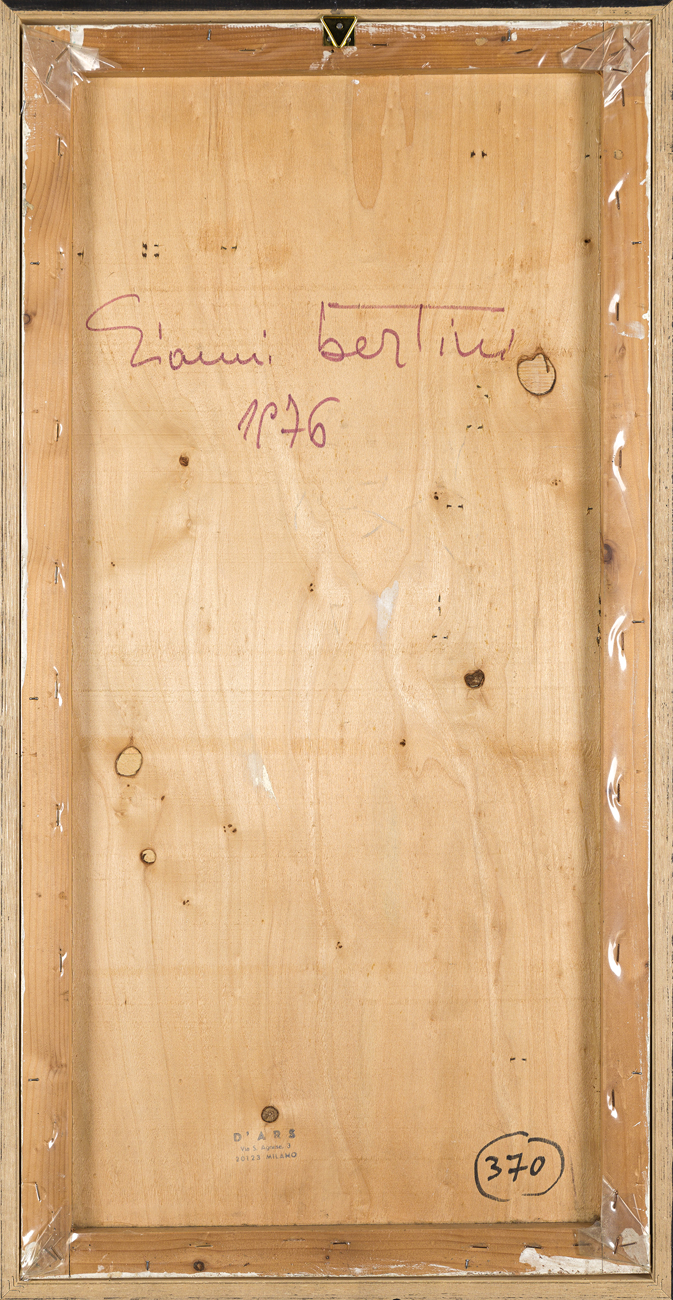 Gianni bertini
1976
D'ARS
Via S. Agnese, 3
20123 MILANO
370